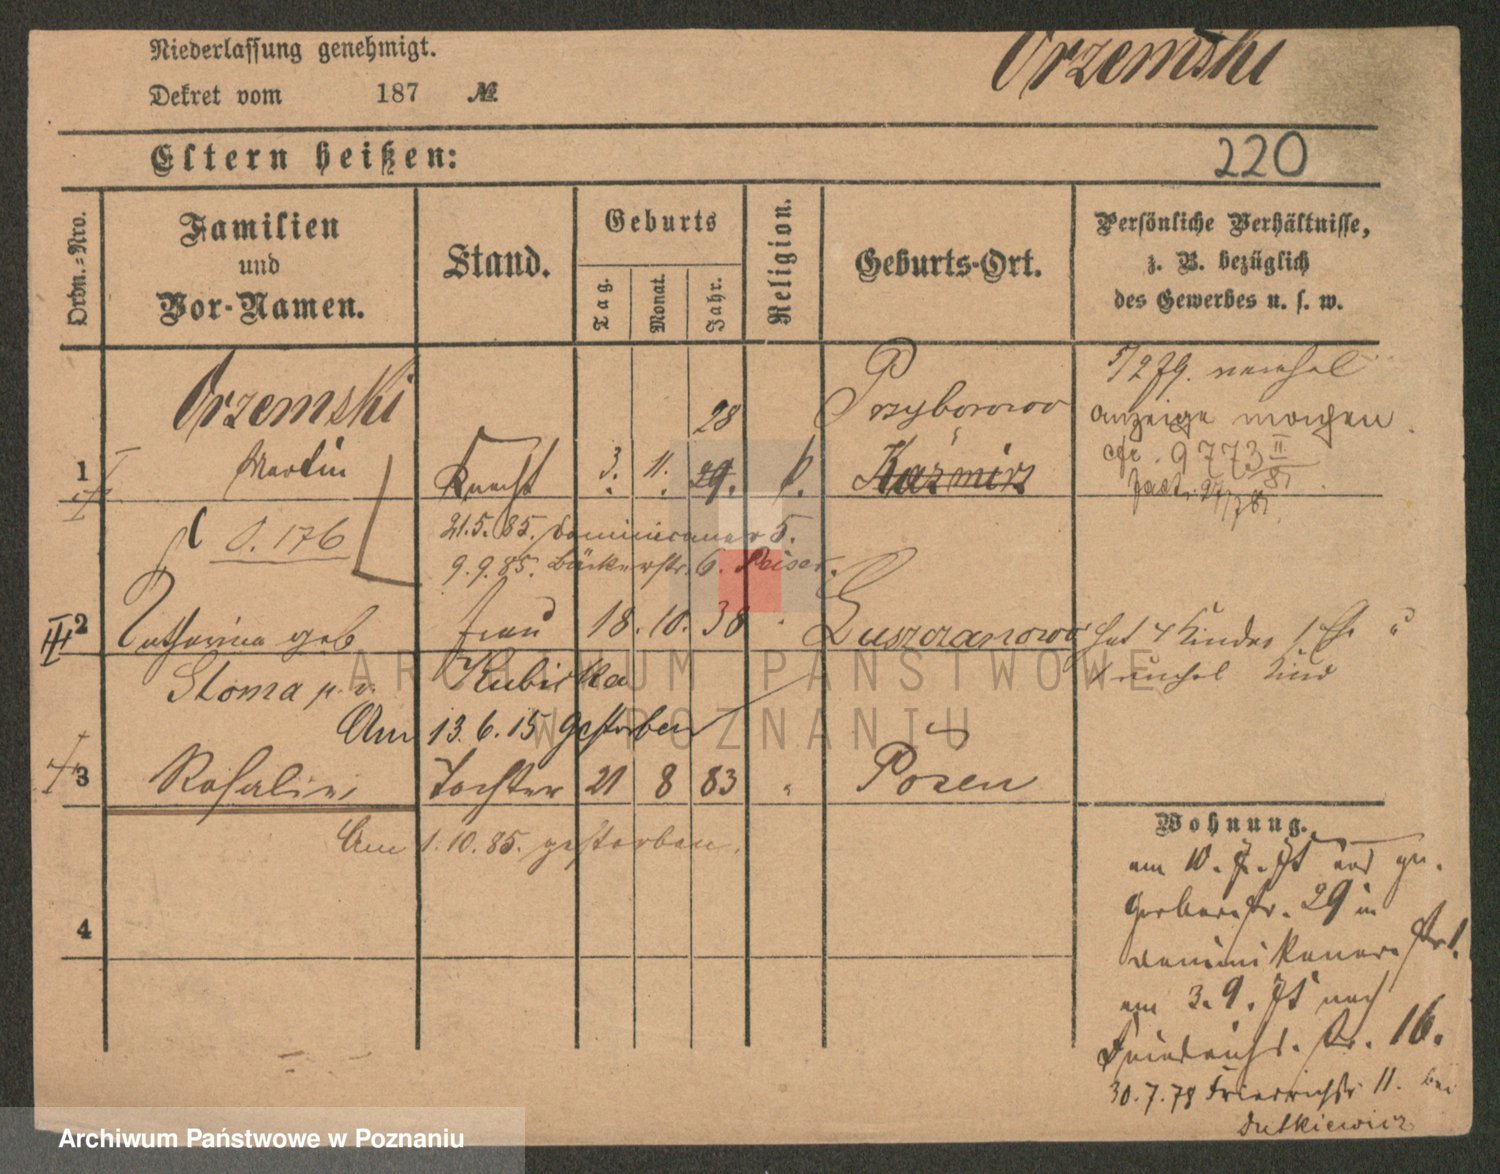 Niederlassung genehmigt.
Dekret vom 187 №
Orzemski
Eltern heißen:
220
Ordn.-Nro.
Familien
und
Vor-Namen.
Stand.
Geburts
Tag.
Monat.
Jahr.
Religion.
Geburts-Ort.
Persönliche Verhältnisse,
z. B. bezüglich
des Gewerbes u. s. w.
Orzemski
28
Przyborowo
5/2 79.
Anzeige
1
I
Martin
Knecht
3.
11.
29.
k.
Kazmirz
cfr. 9773 II/81
S. 176
21.5.85. Dominicaner 5.
9.9.85. Bäckerstr. 6. Peiser.
2
III
Catharina geb
Frau
18.
10.
38
"
Luszczanowo
hat 4 Kinder 1 Eh. "
Stoma p. v. Kubiska
1 unehel Kind
Am 13.6.15 gestorben
3
Rosalie
Tochter
21
8
83
"
Posen
Am 1.10.85. gestorben.
Wohnung.
am 10.7.75
Gerberstr. 29 in
Dominikanerstr 1.
am 3.9.75 nach
Friedrichs. str. 16.
30.7.78 Friedrichstr 11. bei
Dutkiewicz
4
ARCHIWUM PAŃSTWOWE
W POZNANIU
Archiwum Państwowe w Poznaniu